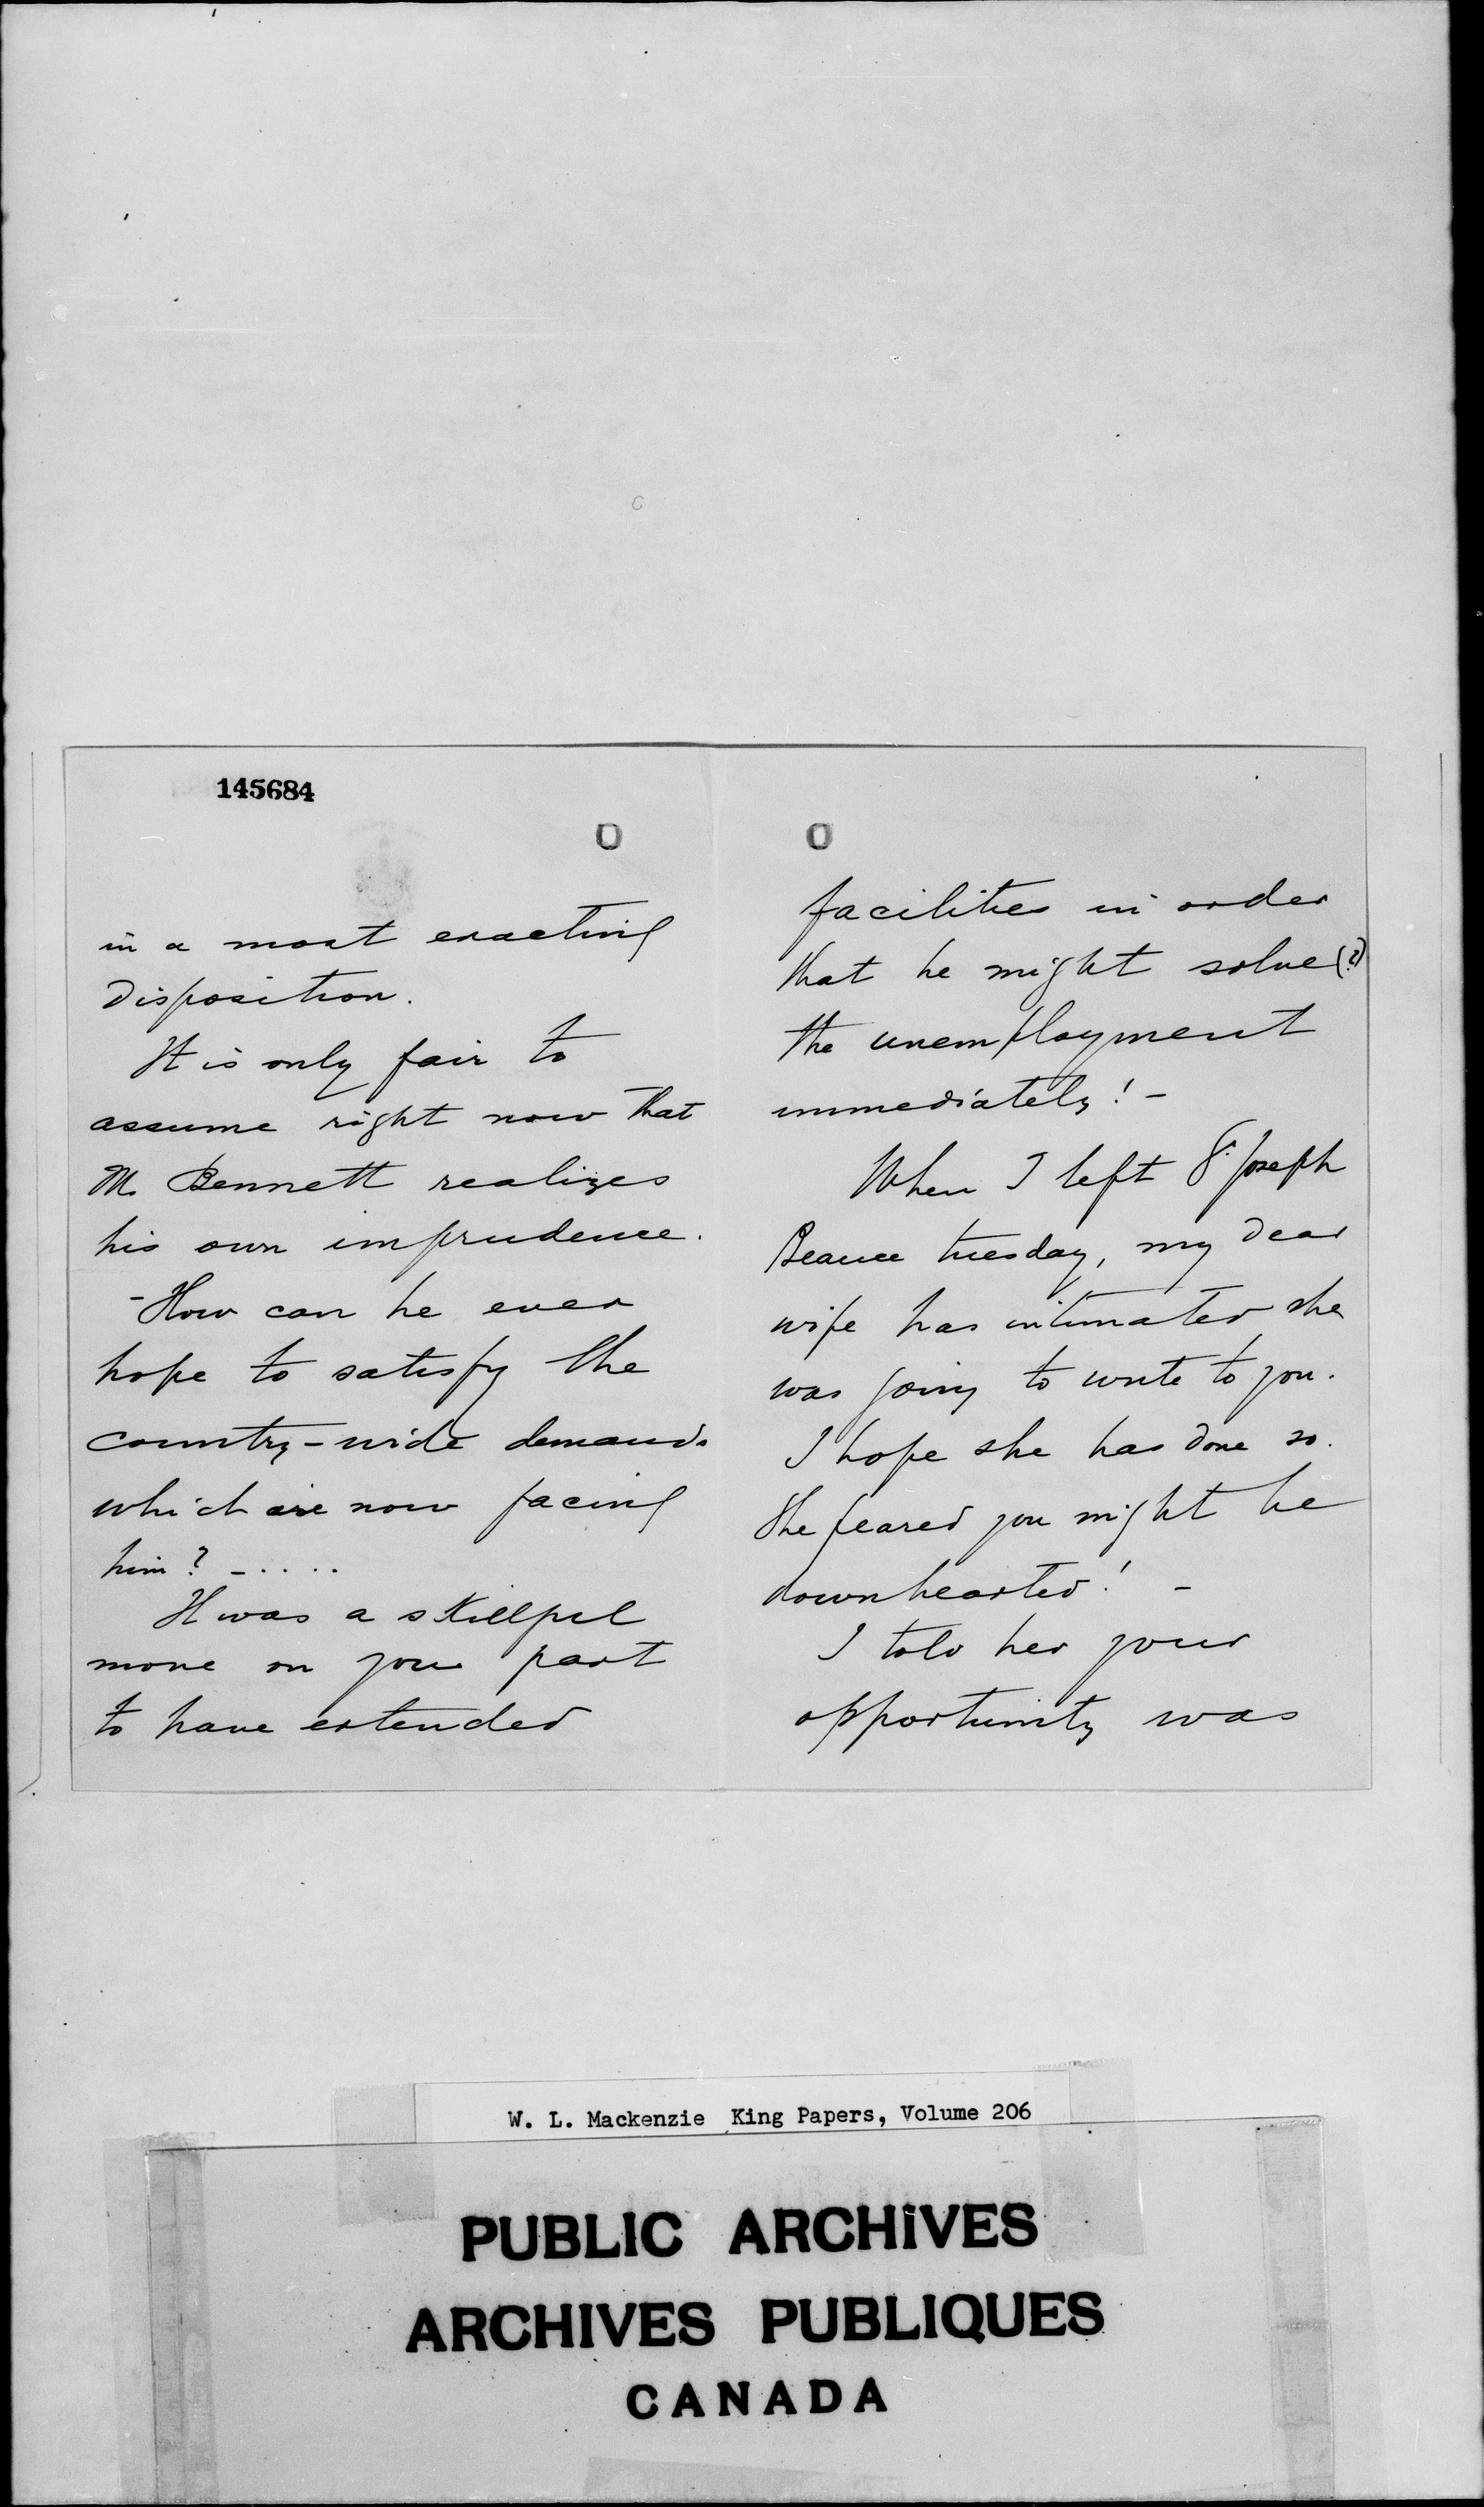 145684
in a most exacting
disposition.
It is only fair to
assume right now that
M. Bennett realizes
his own imprudence.
- How can he ever
hope to satisfy the
country-wide demands
which are now facing
him? - . . . .
It was a skillful
move on your part
to have extended
facilities in order
that he might solve (?)
the unemployment
immediately! -
When I left St. Joseph
Beauce tuesday, my dear
wife has intimated she
was going to write to you.
I hope she has done so.
She feared you might be
downhearted! -
I told her your
opportunity was
W. L. Mackenzie King Papers, Volume 206
PUBLIC ARCHIVES
ARCHIVES PUBLIQUES
CANADA